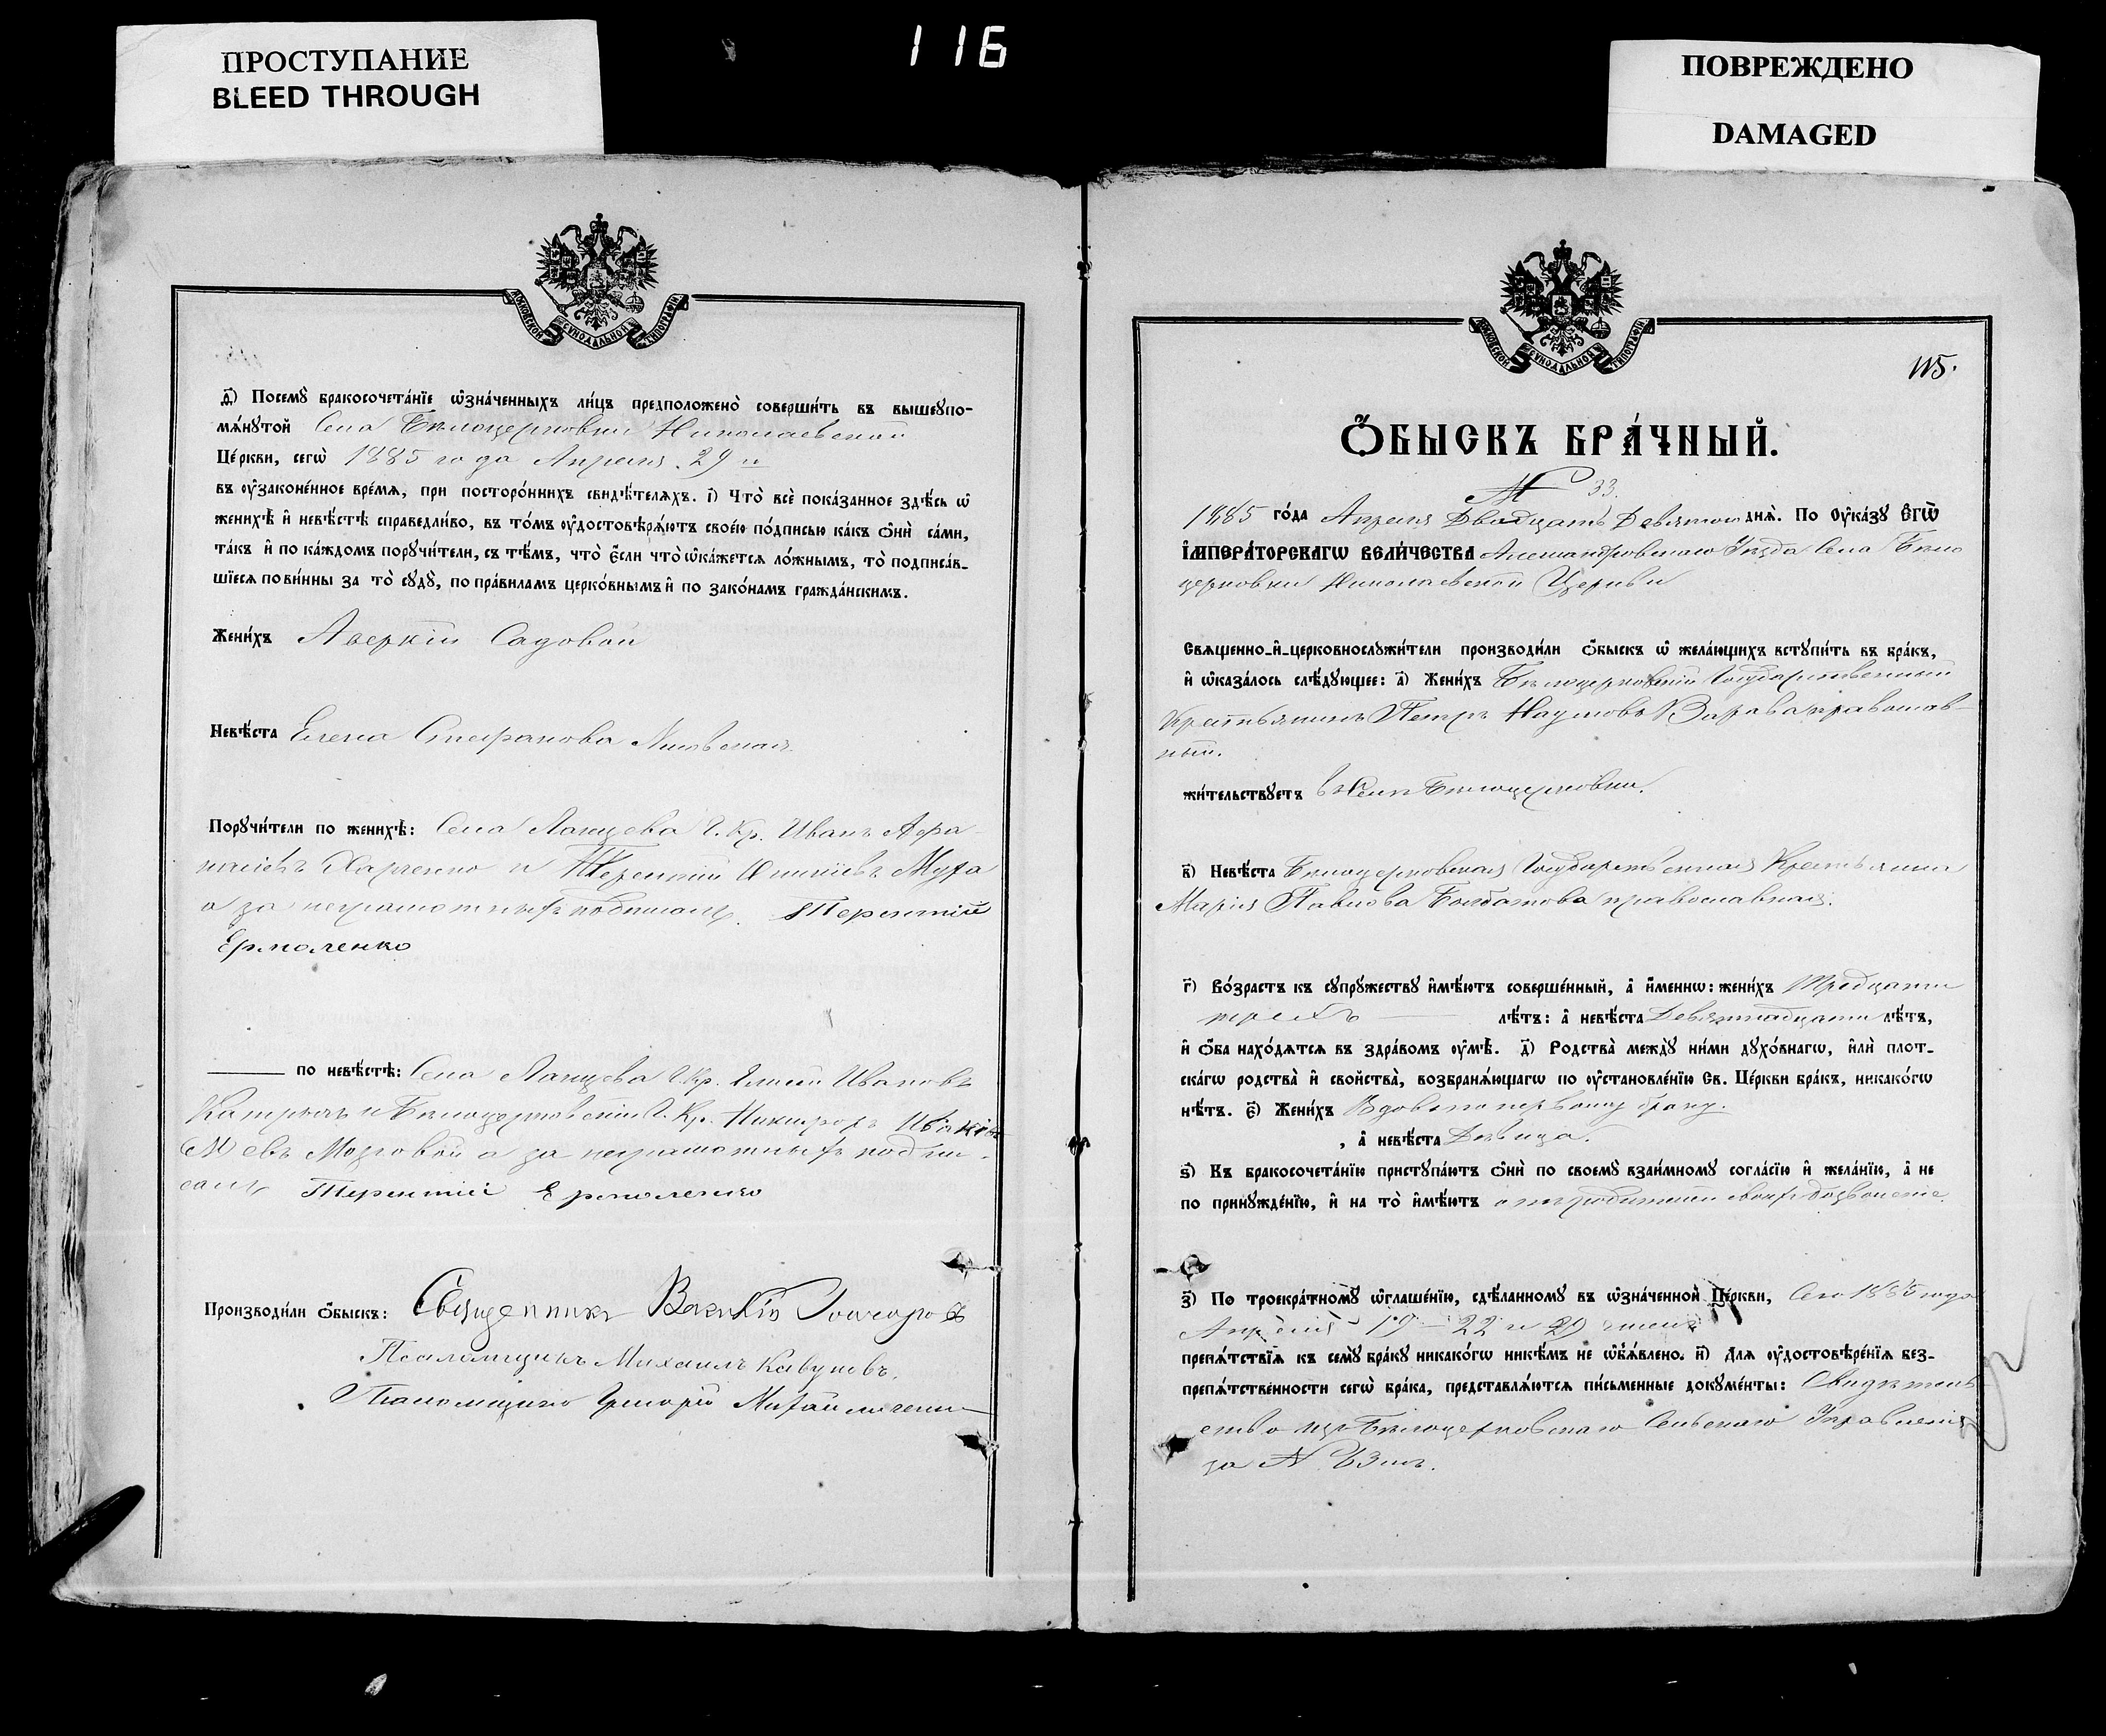 ПРОСТУПАНИЕ
BLEED THROUGH
116
ПОВРЕЖДЕНО
DAMAGED
МОСКОВСКОЙ СѴНОДАЛЬНОЙ ТИПОГРАФІИ
д҃) Посемꙋ̀ бракосочета́нїе ѡ҆зна́ченныхъ ли́цъ предположено̀ соверши́ть въ вышеꙋпо-
мѧ́нꙋтой Села Бѣлоцерковки Николаевской
Це́ркви, сегѡ̀ 1885 года Апреля 29 го
въ ᲂу҆законе́нное вре́мѧ, при посторо́ннихъ свидѣ́телѧхъ. і҃) Что̀ всѐ пока́занное здѣ́сь ѡ҆
женихѣ̀ и҆ невѣ́стѣ справедли́во, въ то́мъ ᲂу҆достовѣрѧ́ютъ свое́ю по́дписью ка́къ ѻ҆нѝ са́ми,
та́къ и҆ по ка́ждомъ порꙋчи́тели, съ тѣ́мъ, что̀ є҆́сли что̀ ѡ҆ка́жетсѧ ло́жнымъ, то̀ подписа́в-
шїесѧ пови́нны за то̀ сꙋдꙋ̀, по пра́виламъ церко́внымъ и҆ по зако́намъ гражда́нскимъ.
Жени́хъ Аверкій Садовой
Невѣ́ста Елена Стефанова
Порꙋчи́тели по женихѣ̀: Села Ланцева Г. Кр. Иванъ Афа-
насіевъ Харченко и Терентій Муха
а за неграмотныхъ подписалъ Терентій
Ермоленко
по невѣ́стѣ: Села Ланцева Г. Кр. Ивановъ
и Бѣлоцерковскій Г. Кр. Никифоръ
Мозговой а за неграмотныхъ подпи-
салъ Терентій Ермоленко
Производи́ли ѻ҆́быскъ: Священникъ Василій Гончаровъ
Псаломщикъ Михаилъ Кавуновъ
Псаломщикъ Григорій
МОСКОВСКОЙ СѴНОДАЛЬНОЙ ТИПОГРАФІИ
115.
Ѻ҆́БЫСКЪ БРА́ЧНЫЙ.
№ 33.
1885 го́да Апреля Двадцать Девятого днѧ̀. По Оу҆ка́зꙋ Є҆гѡ̀
І҆мпера́торскагѡ Вели́чества Александровскаго Уѣзда Села Бѣло
церковки Николаевской Церкви
Свѧщенно-и҆-церковнослꙋжи́тели производи́ли ѻ҆́быскъ ѡ҆ жела́ющихъ встꙋпи́ть въ бра́къ,
и҆ ѡ҆каза́лось слѣ́дꙋющее: а҃) Жени́хъ Бѣлоцерковскій Государственный
Крестьянинъ Петръ Наумовъ Варава православ-
ный.
жи́тельствꙋетъ въ Селѣ Бѣлоцерковки.
в҃) Невѣ́ста Бѣлоцерковская Государственная Крестьянка
Марія Павлова Болдатова православная.
г҃) Во́зрастъ къ сꙋпрꙋ́жествꙋ и҆мѣ́ютъ соверше́нный, а҆ и҆́меннѡ: жени́хъ Тридцати
трехъ лѣ́тъ: а҆ невѣ́ста Девятнадцати лѣ́тъ,
и҆ ѻ҆́ба нахо́дѧтсѧ въ здра́вомъ ᲂу҆мѣ̀. д҃) Родства̀ междꙋ̀ ни́ми дꙋхо́внагѡ, и҆лѝ плот-
ска́гѡ родства̀ и҆ свойства̀, возбранѧ́ющагѡ по ᲂу҆становле́нїю Св. Це́ркви бра́къ, никако́гѡ
нѣ́тъ. є҃) Жени́хъ Вдовъ по первому браку.
, а҆ невѣ́ста Дѣвица.
ѕ҃) Къ бракосочета́нїю пристꙋпа́ютъ ѻ҆нѝ по своемꙋ̀ взаи́мномꙋ согла́сїю и҆ жела́нїю, а҆ не
по принꙋжде́нїю, и҆ на то̀ и҆мѣ́ютъ отъ родителей своихъ дозволеніе.
з҃) По троекра́тномꙋ ѡ҆глаше́нїю, сдѣ́ланномꙋ въ ѡ҆зна́ченной Це́ркви, Сего 1885 года
Апреля 19 – 22 и 29 чиселъ
препѧ́тствїѧ къ семꙋ̀ бра́кꙋ никако́гѡ никѣ́мъ не ѡ҆б̾ѧ́влено. и҃) Длѧ ᲂу҆достовѣре́нїѧ без-
препѧ́тственности сегѡ̀ бра́ка, представлѧ́ютсѧ пи́сьменные докꙋме́нты: Свидѣтель-
ство изъ Бѣлоцерковскаго Сельскаго Управленія
за №